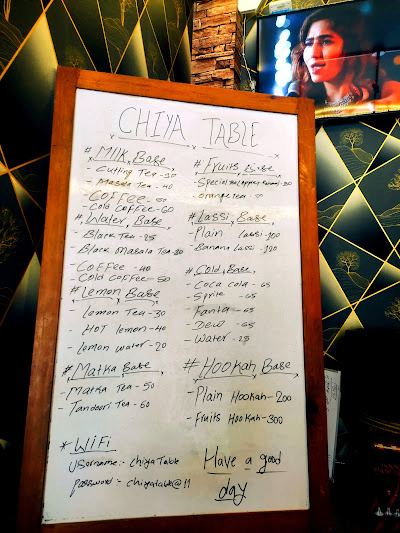 CHIYA TABLE
# Milk Base
- Cutting Tea - 30
- Masala Tea - 40
- Coffee
- Cold Coffee - 60
# Water Base
- Black Tea - 25
- Black Masala Tea - 30
- Coffee - 40
- Cold Coffee - 50
# Lemon Base
- Lemon Tea - 30
- Hot lemon - 40
- lemon water - 20
# Matka Base
- Matka Tea - 50
- Tandoori Tea - 60
# Fruits Base
- Special
- Orange tea
# Lassi Base
- Plain Lassi - 100
- Banana Lassi - 120
# Cold Base
- Coca cola - 65
- Sprite - 65
- Fanta - 65
- Dew - 65
- Water - 25
# Hookah Base
- Plain Hookah - 200
- Fruits Hookah - 300
* WiFi
Username:- chiyaTable
password:- chiyatable@11
Have a good
day